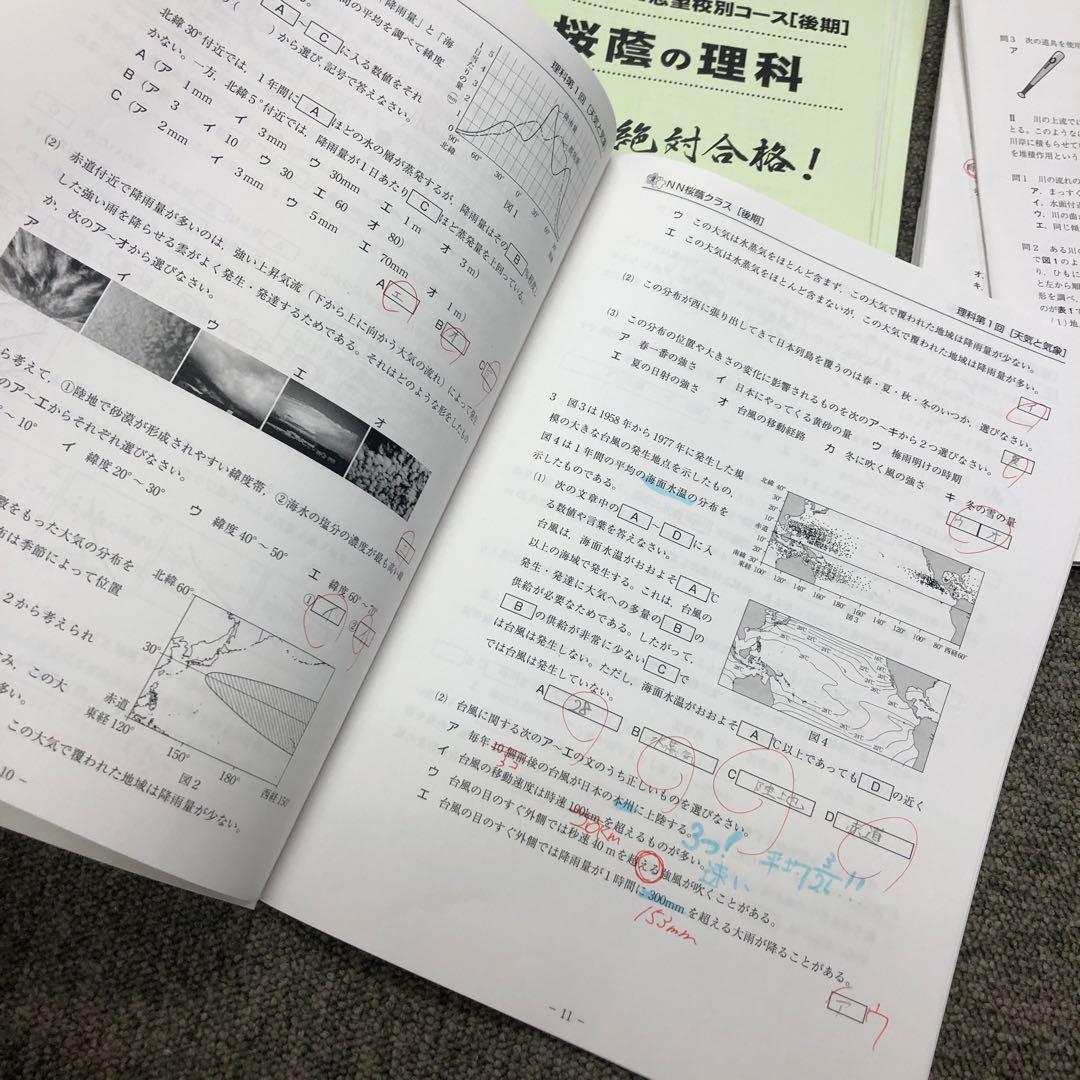 理科第1回［天気と気象］
A～Cに入る数値をそれ
)から選び,記号で答えなさい。
北緯30°付近では，1年間にAほどの水の層が蒸発するが，降雨量はその
かない。一方，北緯5°付近では，降雨量が1日あたりCほど蒸発量を上回っている。
A（ア 1mm イ 3mm ウ 30mm エ 1m オ 3m）
B（ア 3 イ 10 ウ 30 エ 60 オ 80）
C（ア 2mm イ 3mm ウ 5mm エ 70mm オ 1m）
A エ
B オ
図1
(2) 赤道付近で降雨量が多いのは，強い上昇気流（下から上に向かう大気の流れ）によって発
した強い雨を降らせる雲がよく発生・発達するためである。それはどのような形をしたもの
か，次のア～オから選びなさい。
ア
イ
ウ
エ
オ
ら考えて，①陸地で砂漠が形成されやすい緯度帯，②海水の塩分の濃度が最も高い緯
のア～エからそれぞれ選びなさい。
～10° イ 緯度20°～30° ウ 緯度40°～50° エ 緯度60°～70°
① イ
②
をもった大気の分布を
布は季節によって位置
2から考えられ
この大
多い。
この大気で覆われた地域は降雨量が少ない。
北緯60°
30°
赤道
東経120° 150° 180° 西経150°
図2
10 －
NN桜蔭クラス［後期］
理科第1回［天気と気象］
ウ この大気は水蒸気をほとんど含まず，この大気で覆われた地域は降雨量が少ない。
エ この大気は水蒸気をほとんど含まないが，この大気で覆われた地域は降雨量が多い。
イ
(2) この分布が西に張り出してきて日本列島を覆うのは春・夏・秋・冬のいつか，選びなさい。
夏
(3) この分布の位置や大きさの変化に影響されるものを次のア～キから2つ選びなさい。
ア 春一番の強さ イ 日本にやってくる黄砂の量 ウ 梅雨明けの時期
エ 夏の日射の強さ オ 台風の移動経路 カ 冬に吹く風の強さ キ 冬の雪の量
ウ オ
3 図3は1958年から1977年に発生した規
模の大きな台風の発生地点を示したもの，
図4は1年間の平均の海面水温の分布を
示したものである。
(1) 次の文章中のA～Dに入
る数値や言葉を答えなさい。
台風は，海面水温がおおよそA℃
以上の海域で発生する。これは，台風の
発生・発達に大気への多量のBの
供給が必要なためである。したがって，
Bの供給が非常に少ないCで
は台風は発生しない。ただし，海面水温がおおよそA℃以上であってもDの近く
では台風は発生していない。
図3
図4
A 28
B 水蒸気
C 陸地
D 赤道
(2) 台風に関する次のア～エの文のうち正しいものを選びなさい。
ア 毎年10個前後の台風が日本の本州に上陸する。
3コ
3つ!
イ 台風の移動速度は時速100kmを超えるものが多い。
20km
速い
ウ 台風の目のすぐ外側では秒速40mを超える強風が吹くことがある。
エ 台風の目のすぐ外側では降雨量が1時間に300mmを超える大雨が降ることがある。
153mm
ア
ウ
－ 11 －
志望校別コース［後期］
桜蔭の理科
絶対合格！
問3 次の道具を使用
ア
Ⅱ 川の上流では
とる。このような
川岸に積もらせてい
を堆積作用という
問1 川の流れの
ア．まっすぐ
イ．水面付近
ウ．川の曲
エ．同じ傾
問2 ある川の
で図1のよ
り，ひもに
と左から順
形を調べ，
のが表1で
(1)地